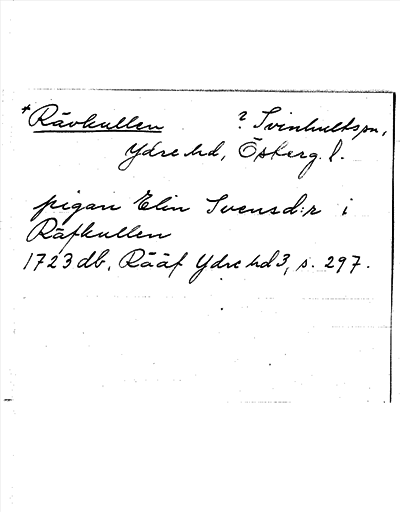 *Rävkullen ? Svinhultssn,
Ydre hd, Österg. l.
pigan Elin Svensd:r i
Räfkullen
1723 db. Rääf Ydre hd 3, s. 297.